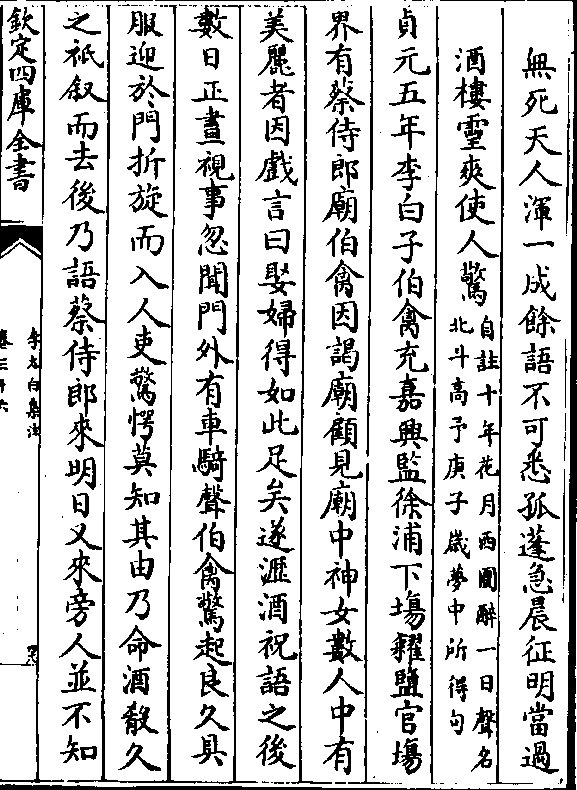 無死天人渾一成餘語不可悉孤蓬急晨征明當過
酒樓靈爽使人驚自註十年花月西圊醉一日聲名
北斗高予庚子歲夢中所得句
貞元五年李白子伯禽充嘉興監徐浦下場糴鹽官場
界有蔡侍郎廟伯禽因謁廟顧見廟中神女數人中有
美麗者因戲言曰娶婦得如此足矣遂瀝酒祝語之後
數日正晝視事忽聞門外有車騎聲伯禽驚起良久具
服迎於門折旋而入人吏驚愕莫知其由乃命酒殽久
之祇叙而去後乃語蔡侍郎來明日又來旁人並不知
欽定四庫全書
李太白集注
卷三十六